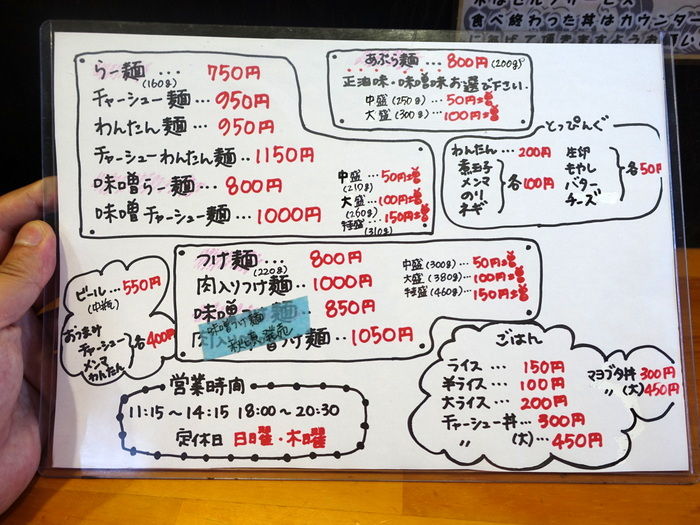 食べ終わった丼はカウンタ
らー麺 … 750円
(160g)
チャーシュー麺 … 950円
わんたん麺 … 950円
チャーシューわんたん麺 … 1150円
味噌らー麺 … 800円
味噌チャーシュー麺 … 1000円
中盛 … 50円増
(210g)
大盛 … 100円増
(260g)
特盛 … 150円増
(310g)
あぶら麺 … 800円 (200g)
正油味・味噌味お選び下さい.
中盛 (250g) … 50円増
大盛 (300g) … 100円増
とっぴんぐ
わんたん … 200円
煮玉子
メンマ
のり
ネギ
各100円
生卵
もやし
バター
チーズ
各50円
つけ麺 … 800円
(220g)
肉入りつけ麺 … 1000円
味噌つけ麺 … 850円
味噌つけ麺
つけ麺 … 1050円
中盛 (300g) … 50円増
大盛 (380g) … 100円増
特盛 (460g) … 150円増
ビール … 550円
(中瓶)
おつまみ
チャーシュー
メンマ
わんたん
各400円
営業時間
11:15～14:15 18:00～20:30
定休日 日曜・木曜
ごはん
ライス … 150円
半ライス … 100円
大ライス … 200円
チャーシュー丼 … 300円
〃 (大) … 450円
マヨブタ丼 300円
〃 (大) 450円